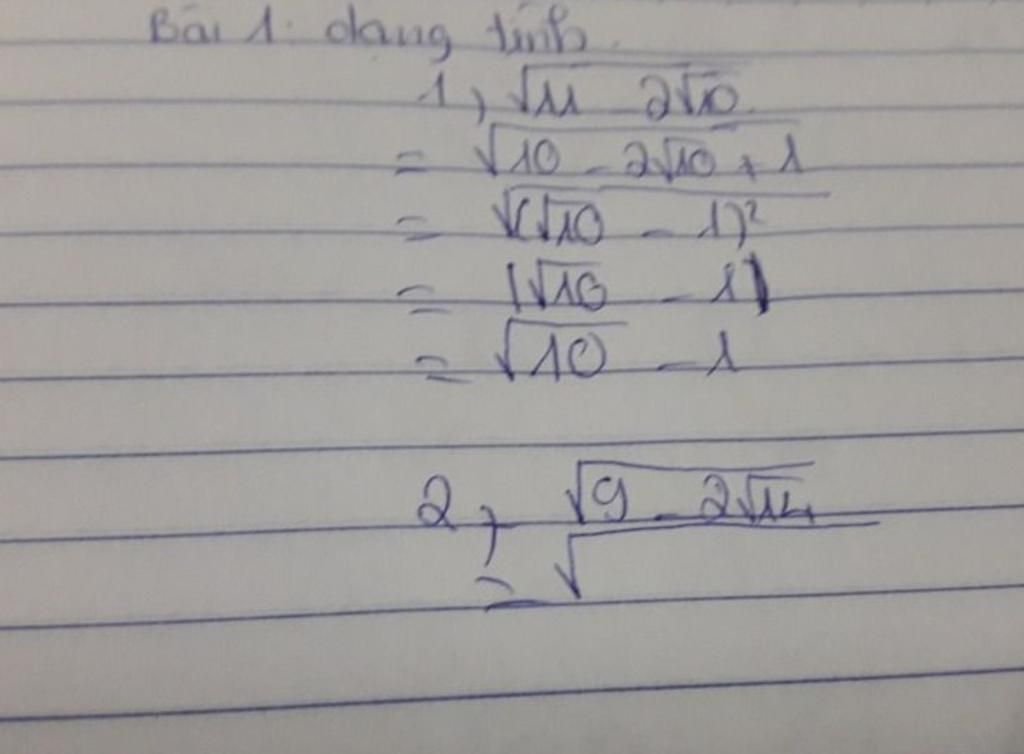 Bài 1. dạng tính.
1, √11 2√10
= √10 - 2√10 + 1
= √(√10 - 1)²
= |√10 - 1|
= √10 - 1
2, √9 - 2√14
= √